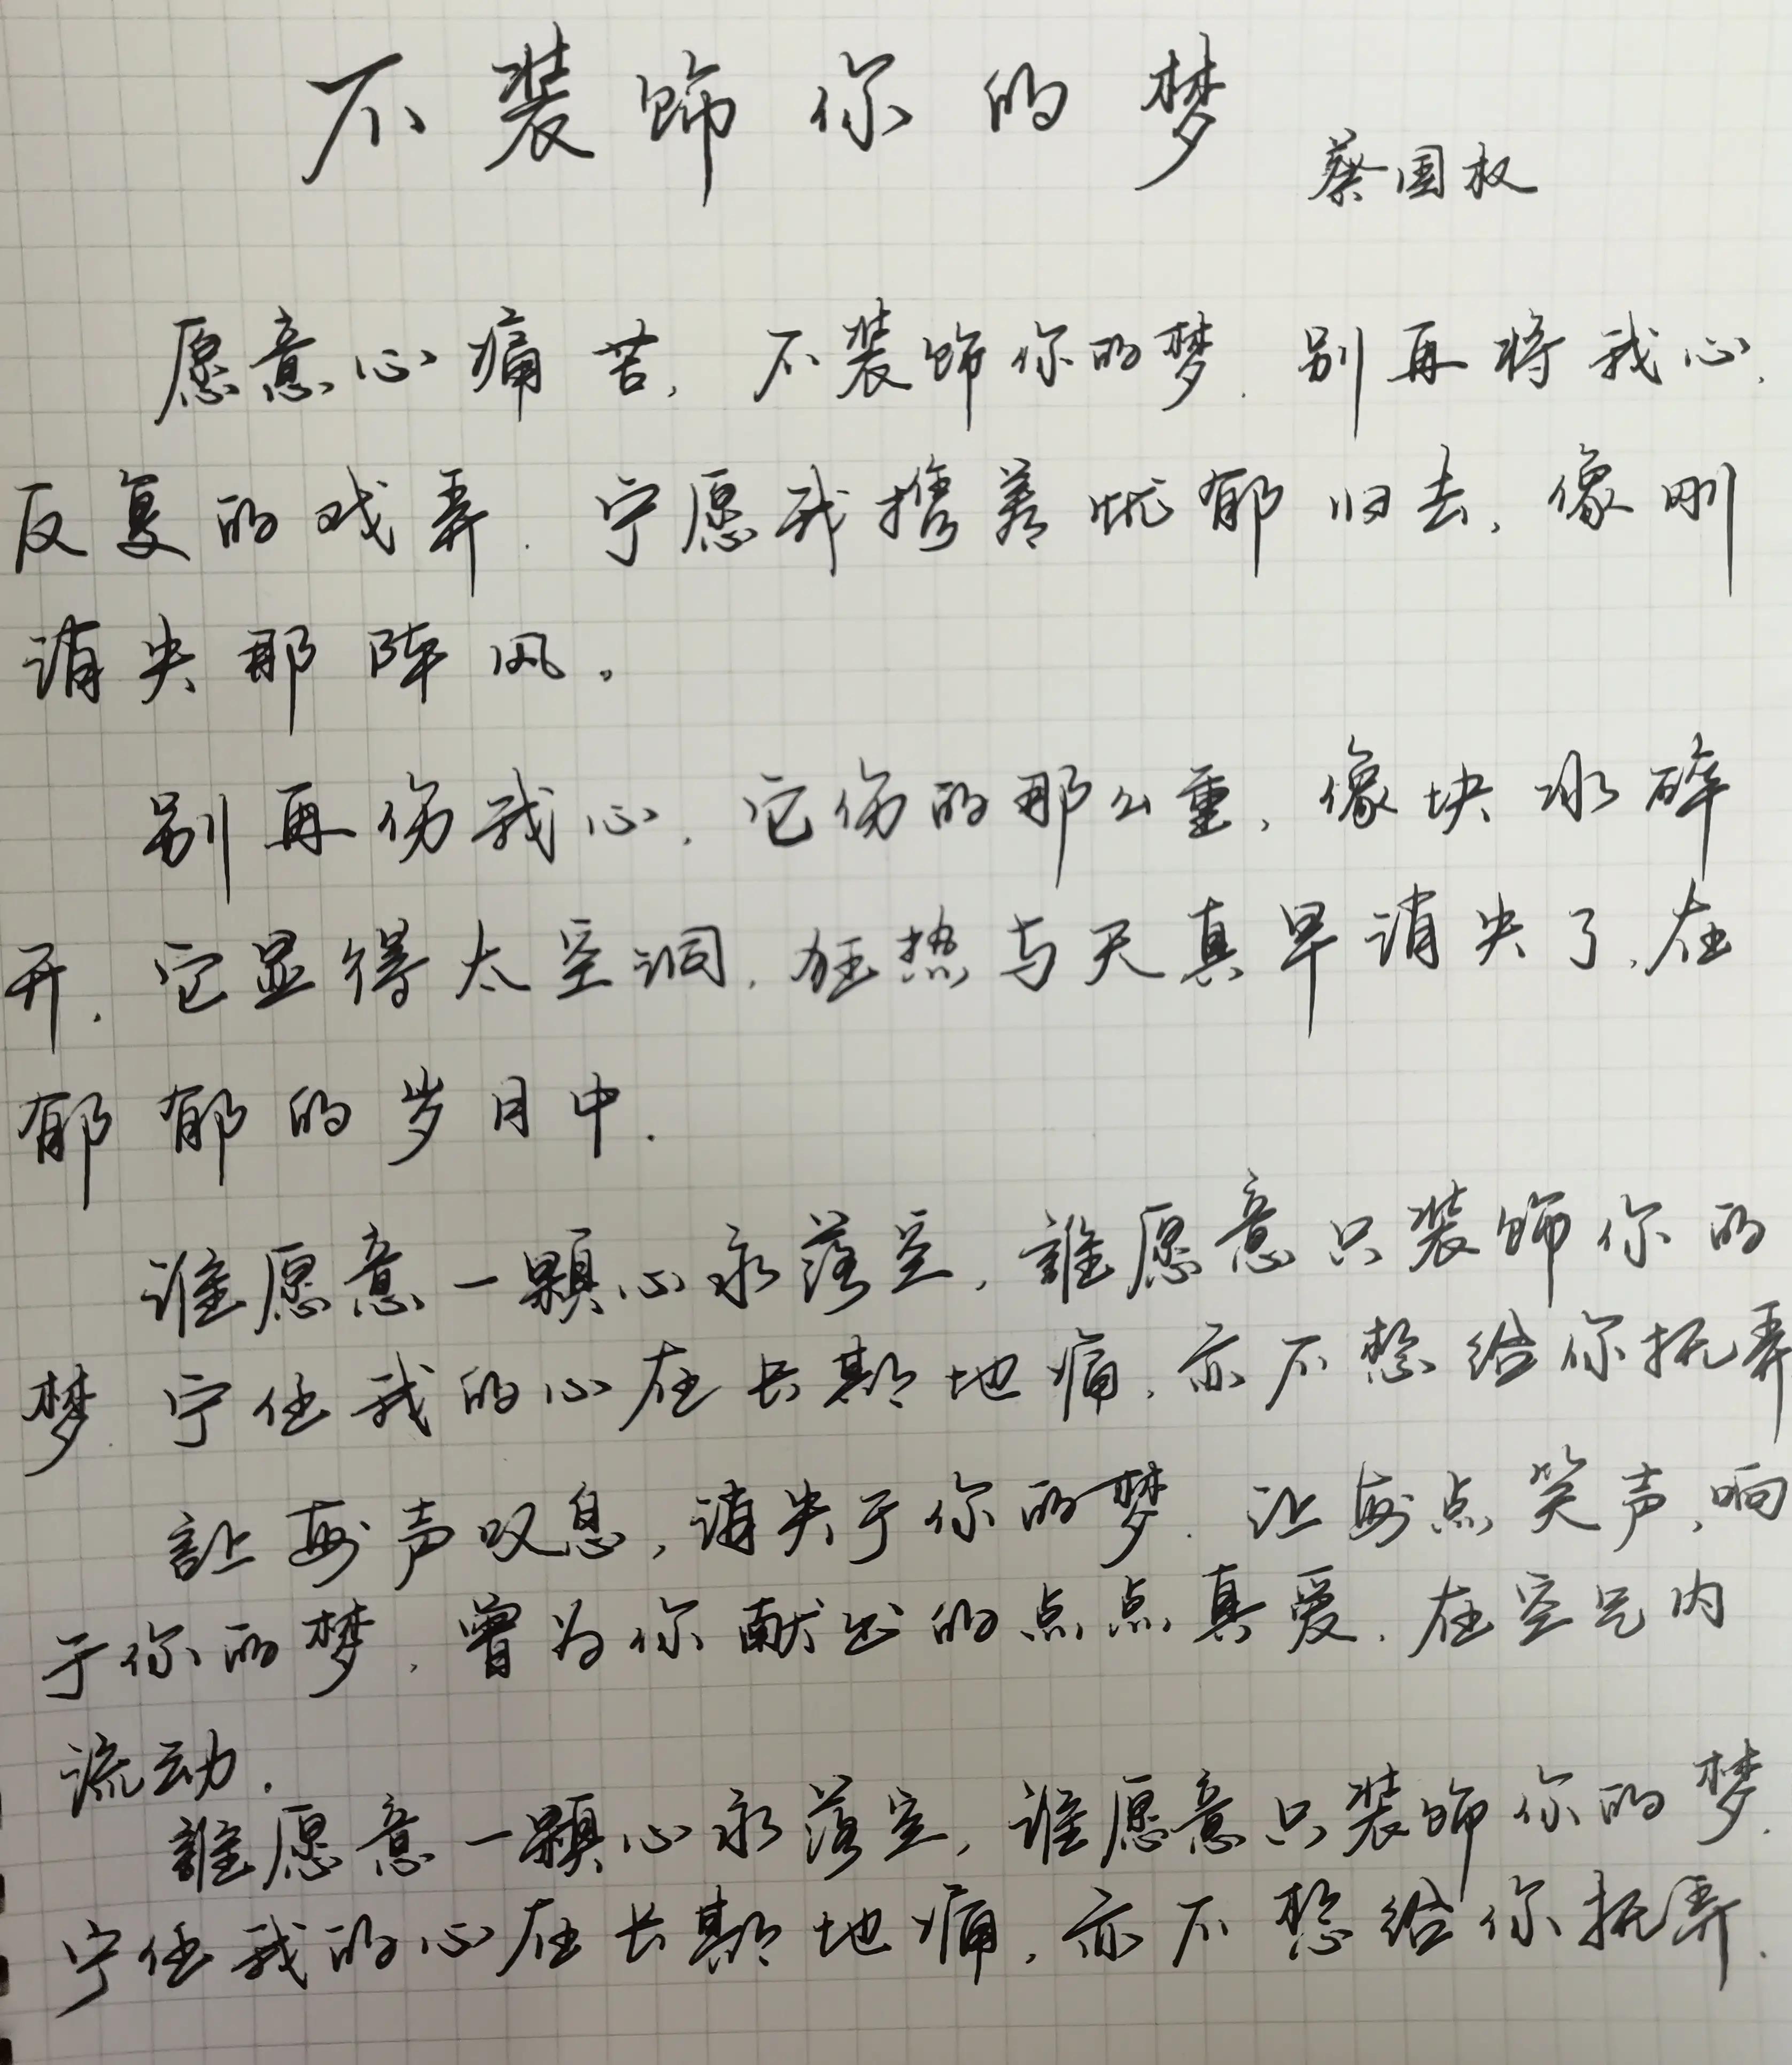 不装饰你的梦
蔡国权
愿意心痛苦,不装饰你的梦.别再将我心,
反复的戏弄.宁愿我携着忧郁归去,像刚
消失那阵风。
别再伤我心,它伤的那么重,像块冰碎
开.它显得太空洞,狂热与天真早消失了,在
郁郁的岁月中.
谁愿意一顆心永落空,誰愿意只装饰你的
梦.宁任我的心在长期地痛,亦不想给你抚弄
讓每声叹息,消失于你的梦.让每点笑声,响
于你的梦,曾为你献出的点点真爱.在空气内
流动.
誰愿意一顆心永落空,谁愿意只装饰你的梦.
宁任我的心在长期地痛,亦不想给你抚弄.